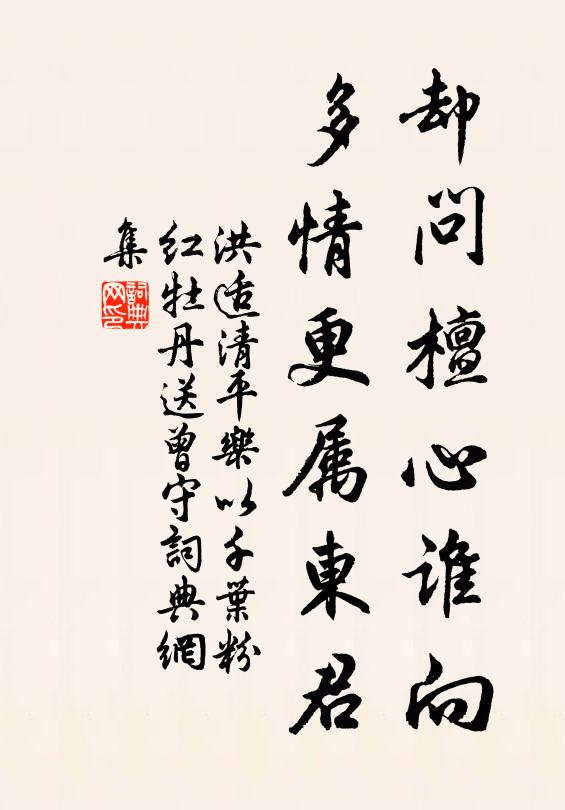 却問檀心誰向
多情更属東君
洪适清平樂以千葉粉
红牡丹送曾守詞典網
集
詞典
网印